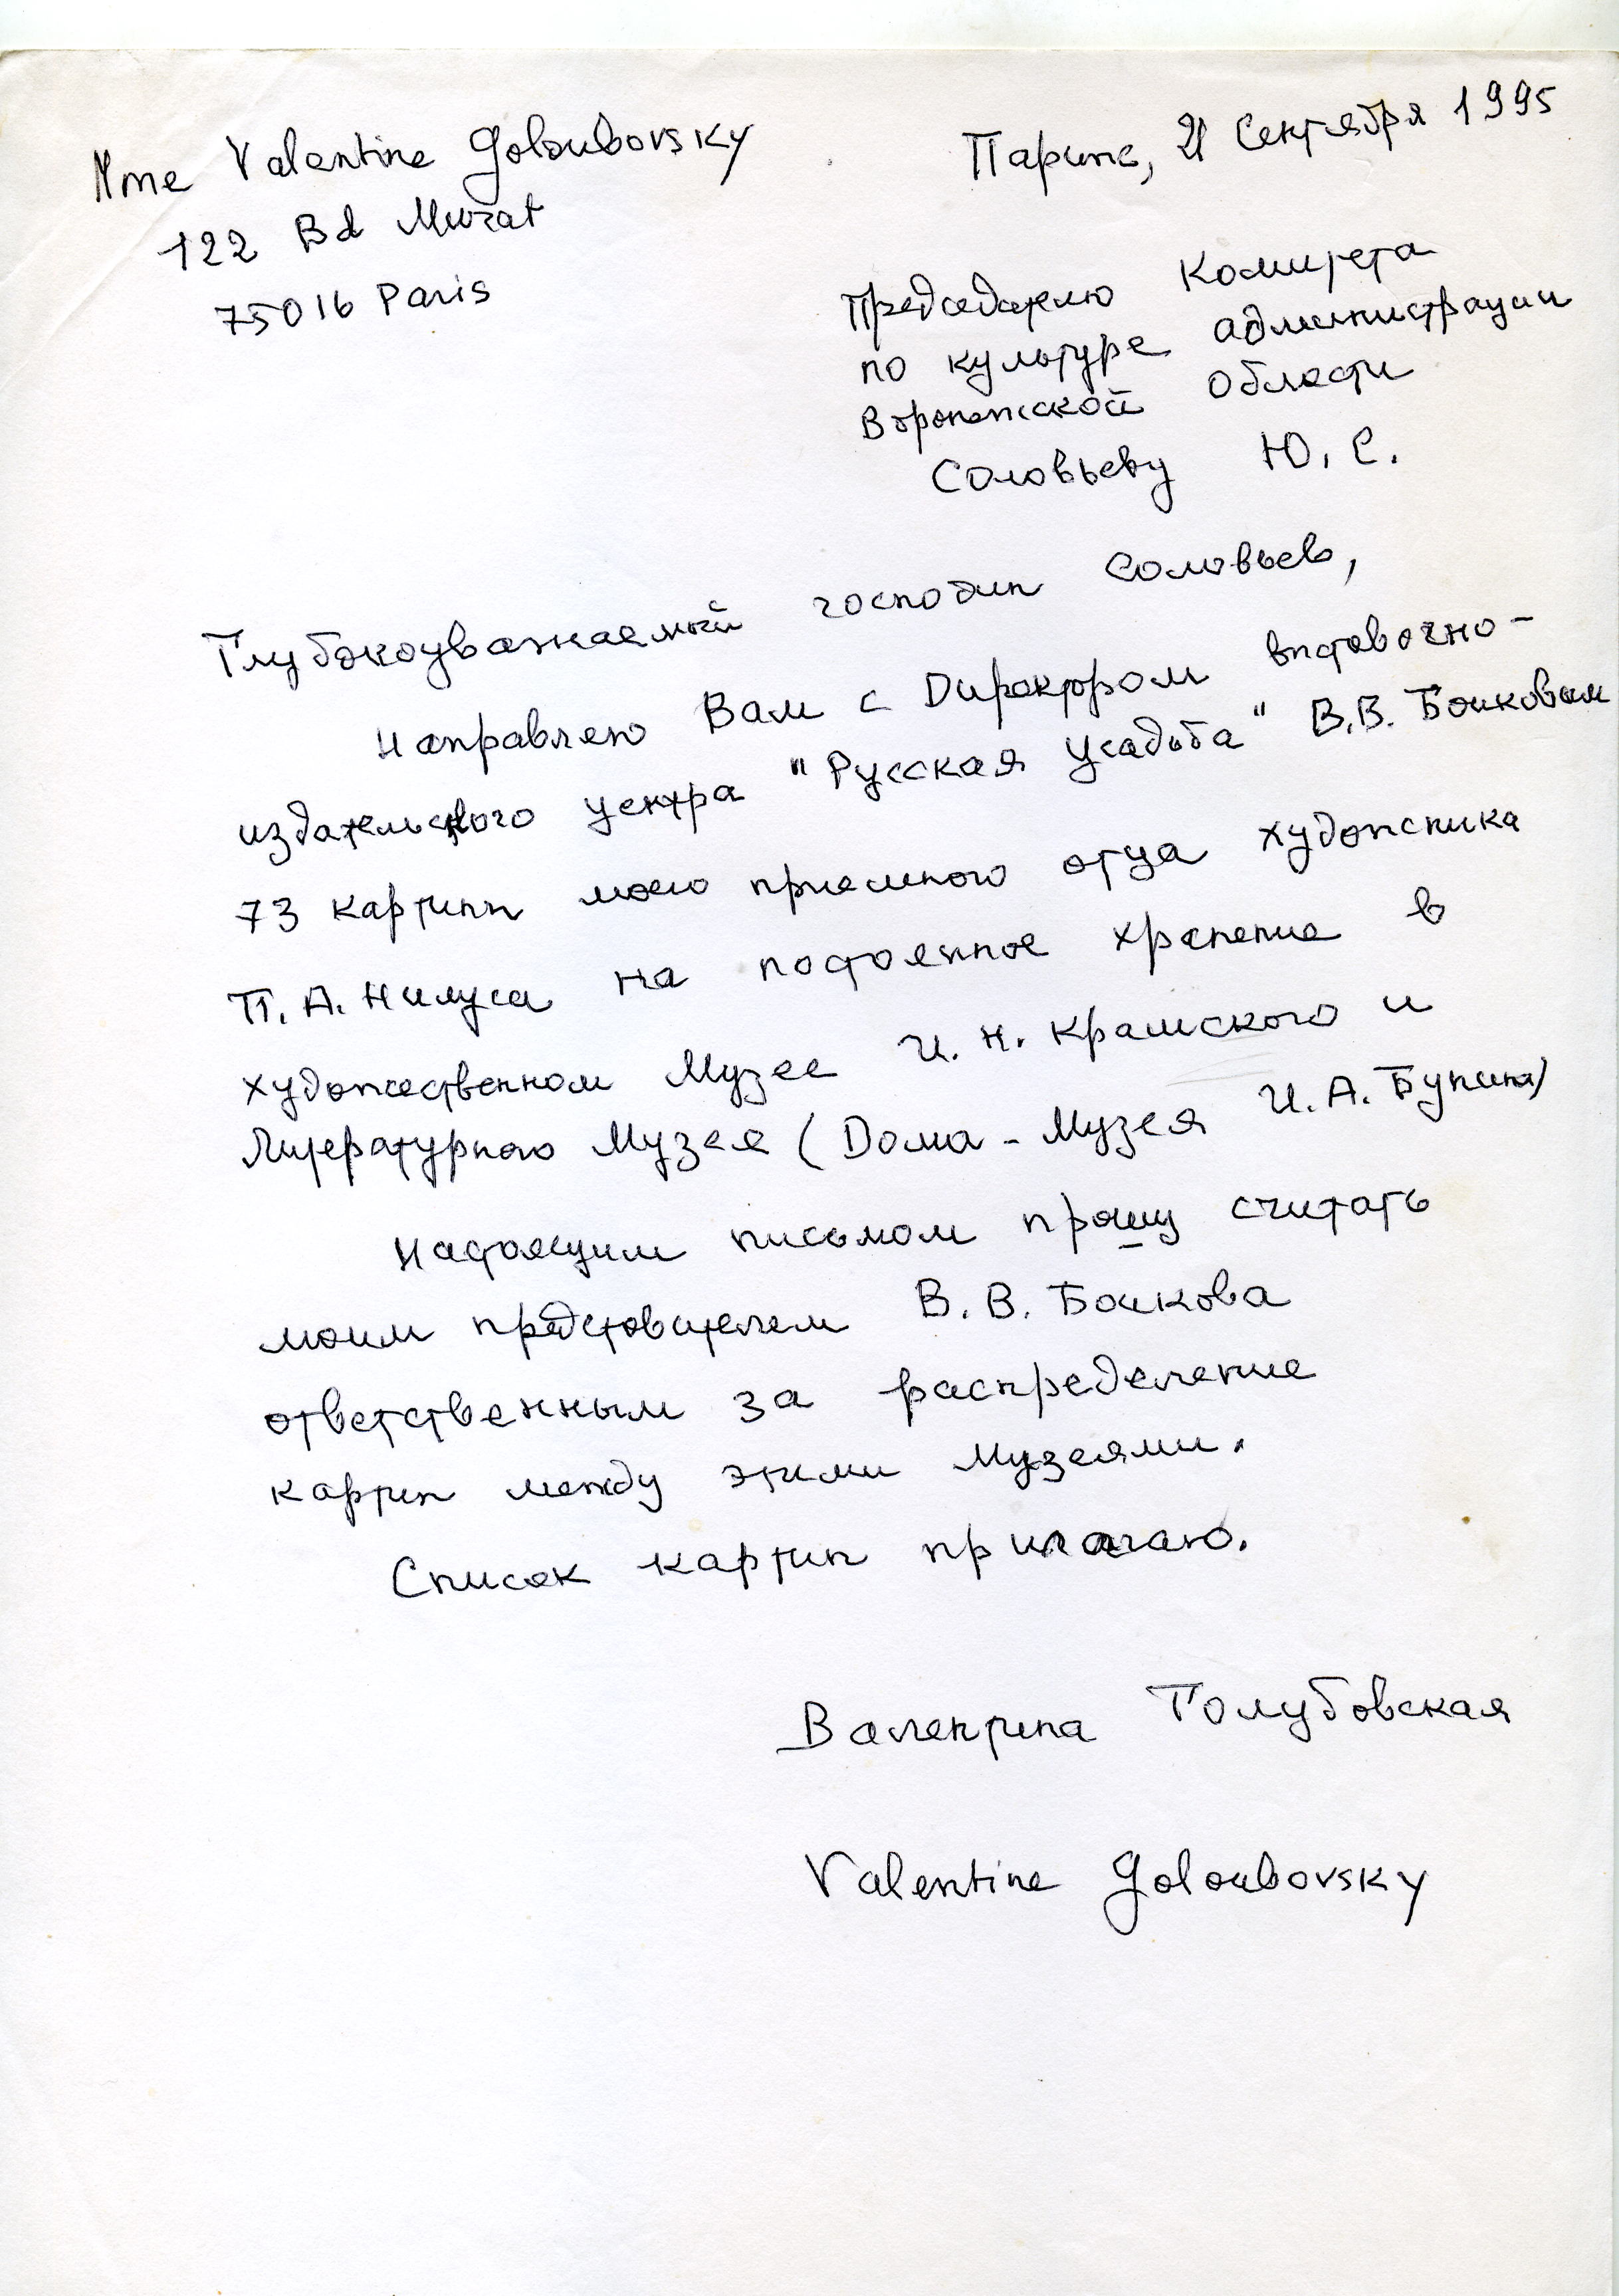 Mme Valentine Goloubovsky
122 Bd Murat
75016 Paris
Париж, 21 Сентября 1995
Председателю Комитета
по культуре администрации
Воронежской области
Соловьеву Ю. С.
Глубокоуважаемый господин Соловьев,
Направляю Вам с Директором выставочно-
издательского центра "Русская усадьба" В.В. Бойковым
73 картины моего приемного отца художника
П. А. Нилуса на постоянное хранение в
художественном Музее И. Н. Крамского и
Литературного Музея (Дома - Музея И. А. Бунина)
Настоящим письмом прошу считать
моим представителем В. В. Бойкова
ответственным за распределение
картин между этими Музеями.
Список картин прилагаю.
Валентина Голубовская
Valentine Goloubovsky